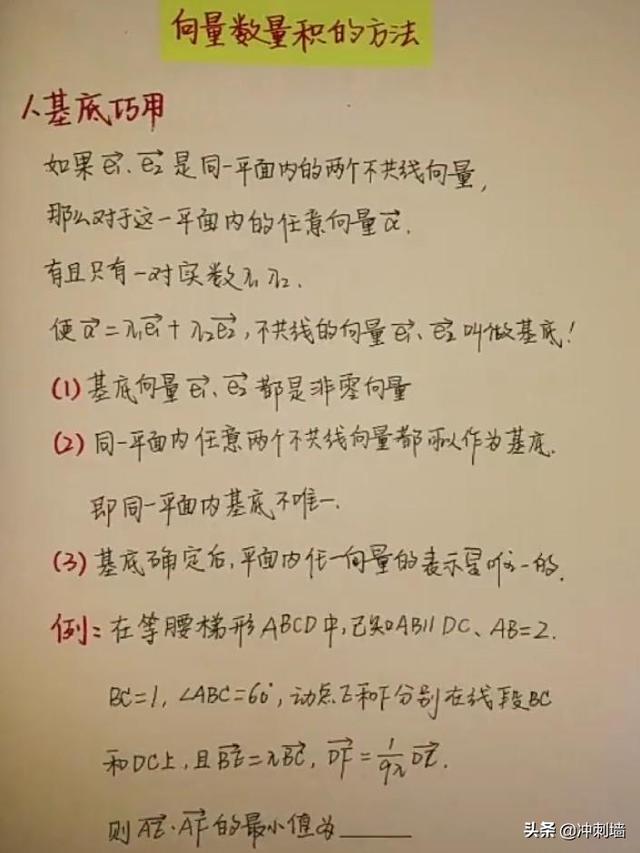 向量数量积的方法
1、基底巧用
如果e1、e2是同一平面内的两个不共线向量,
那么对于这一平面内的任意向量a.
有且只有一对实数λ1 λ2.
使a=λ1e1+λ2e2,不共线的向量e1、e2叫做基底!
(1)基底向量e1、e2都是非零向量
(2)同一平面内任意两个不共线向量都可以作为基底.
即同一平面内基底不唯一.
(3)基底确定后,平面内任一向量的表示是唯一的.
例:在等腰梯形ABCD中,已知AB∥DC、AB=2.
BC=1,∠ABC=60°,动点E和F分别在线段BC
和DC上,且BE=λBC,DF=1/9λ DC.
则AE·AF的最小值为______
头条@冲刺墙